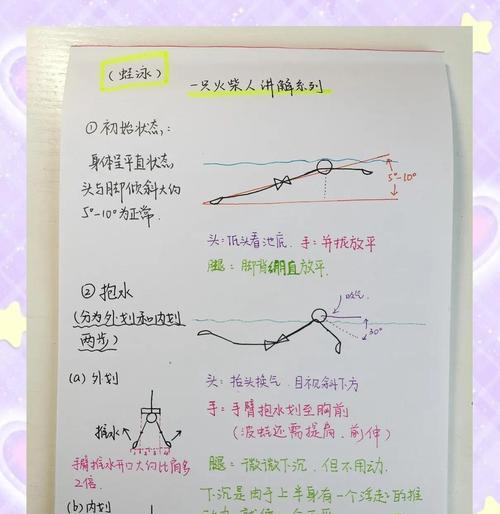 (蛙泳)
一只火柴人讲解系列
①初始状态:
身体呈平直状态,
头与脚倾斜大约
5°-10°为正常.
5°-10°
头:低头看池底. 手:并拢放平
腿:脚背绷直放平.
②抱水
(分为外划和内划
两步)
吸气
30°
(a) 外划
头:抬头换气,目视斜下方
手:手臂抱水划至胸前
(波蛙还需提肩,前伸)
推水
手臂推水开口大约比肩多
2倍.
腿:微微下沉,但不用动.
下沉是由于上半身有一个浮起的推
(b) 内划